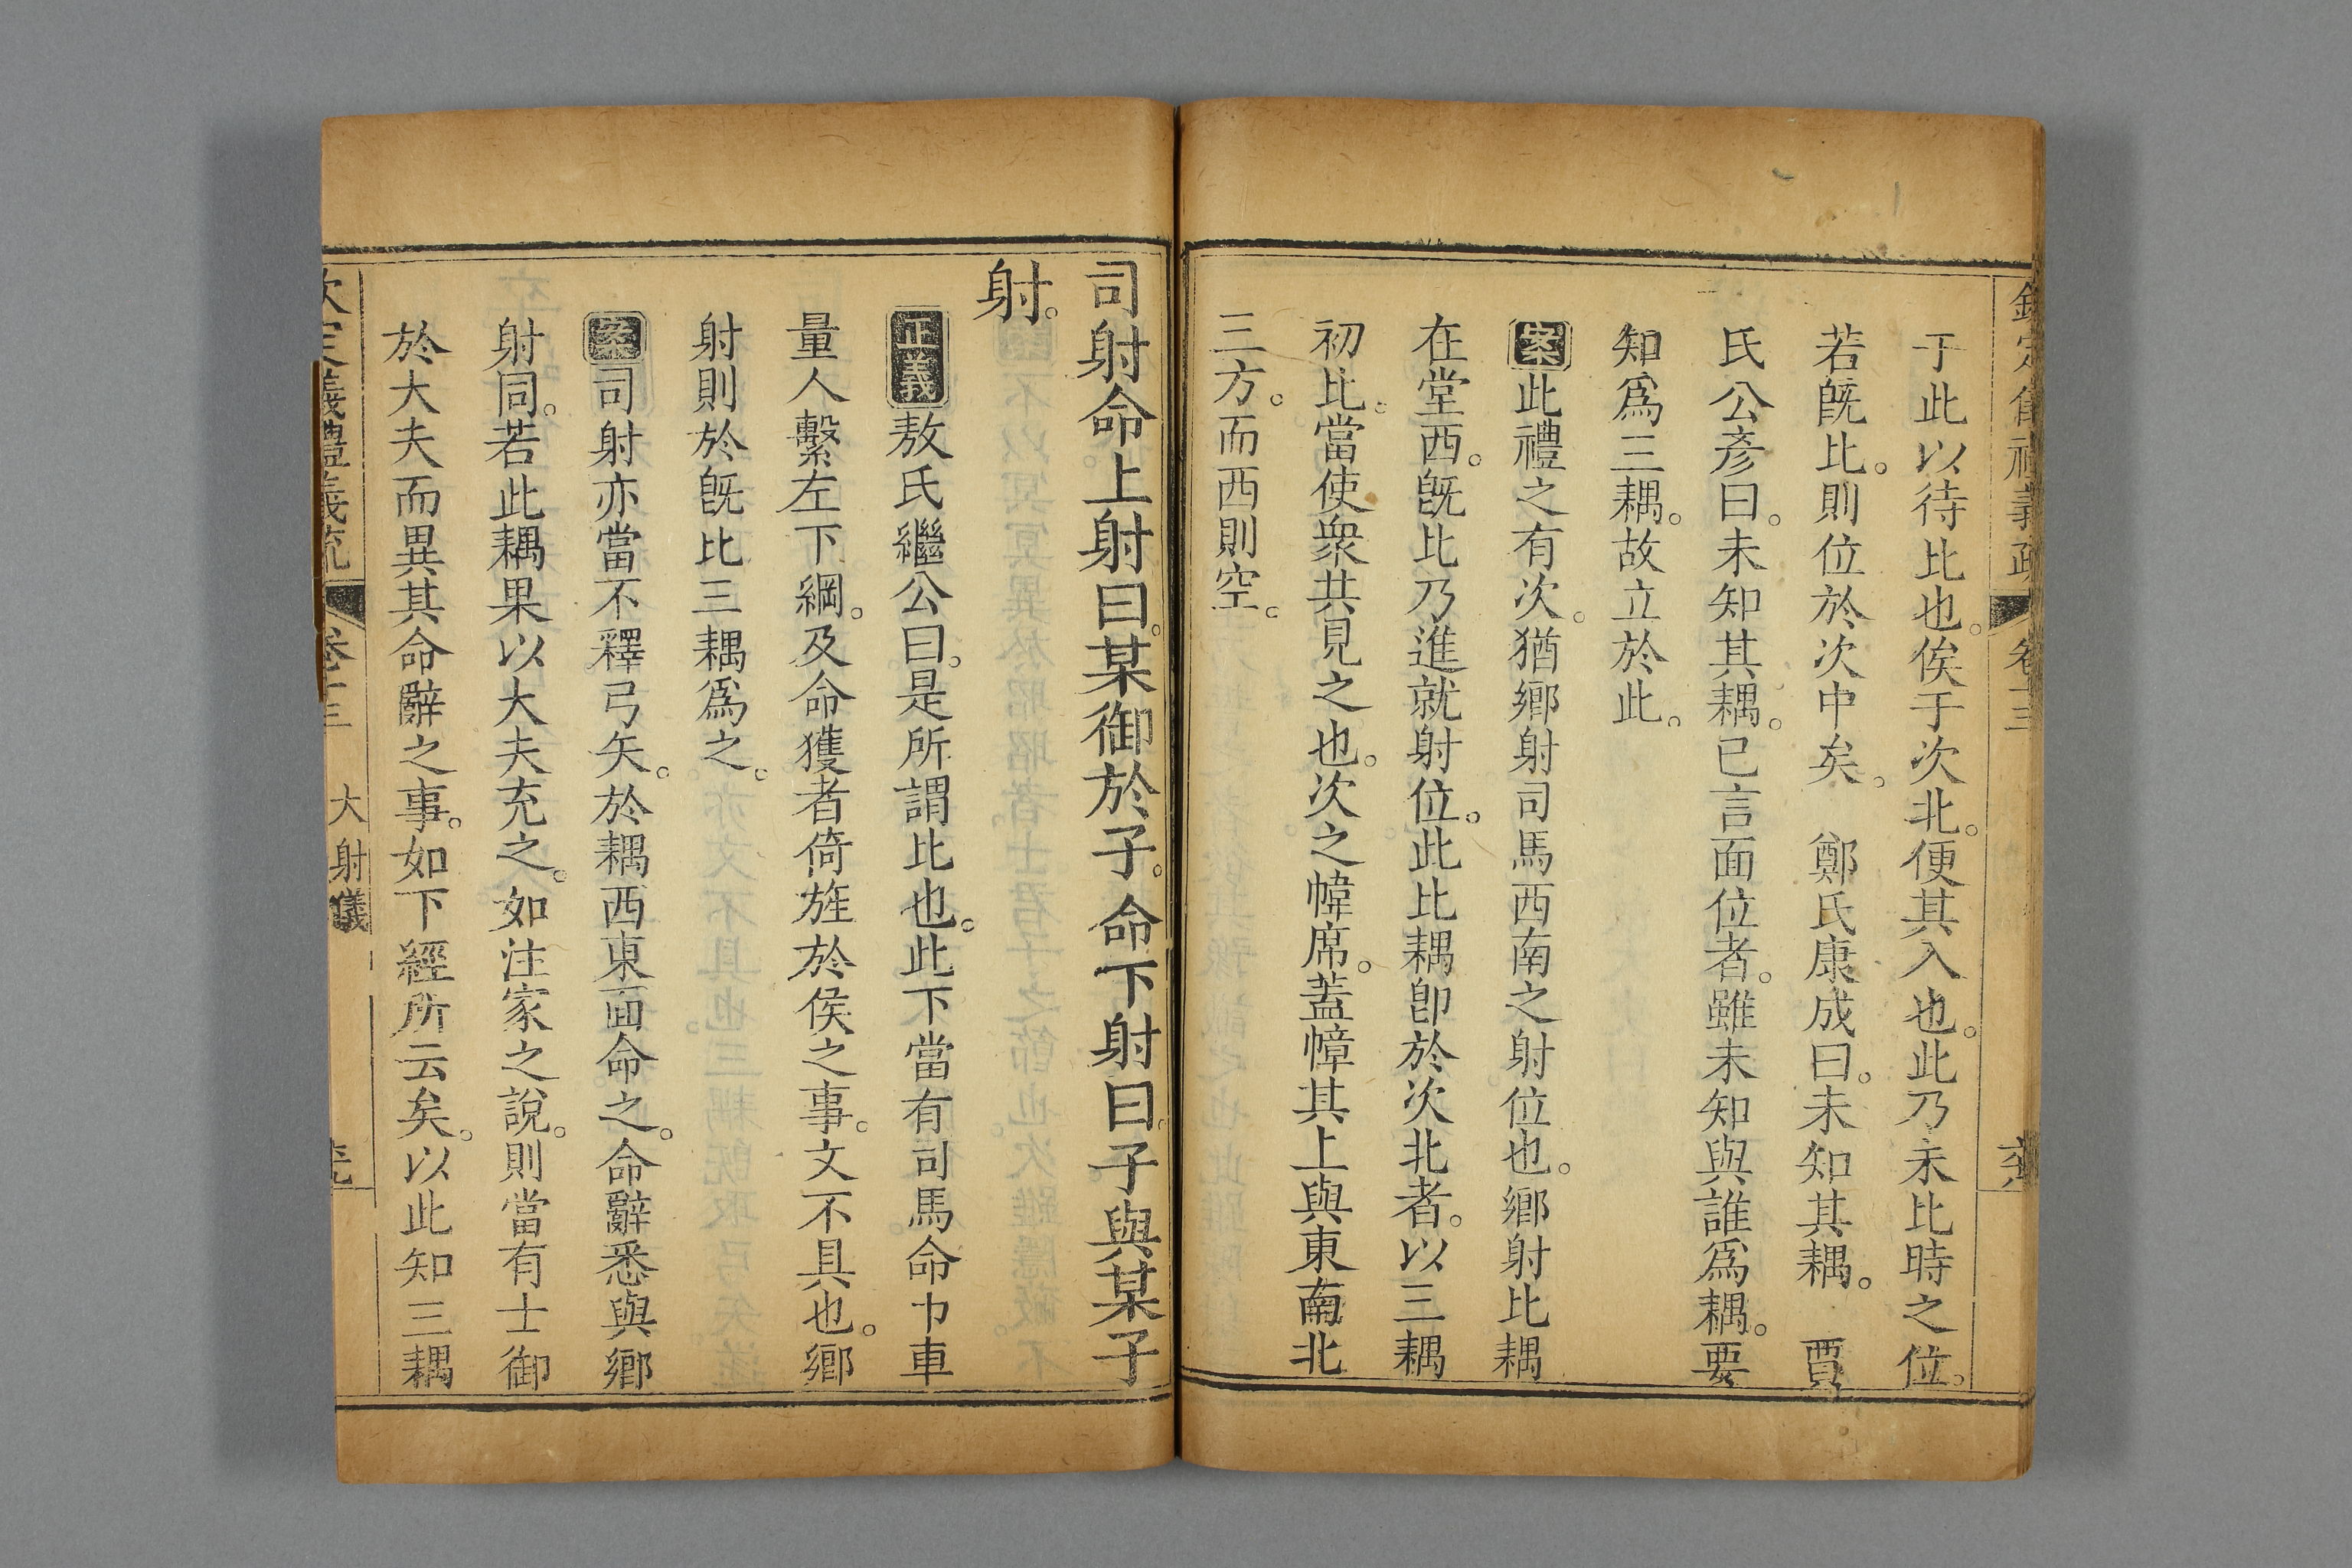 于此以待比也。俟于次北。便其入也。此乃未比時之位。
若旣比。則位於次中矣。 鄭氏康成曰。未知其耦。 賈
氏公彥曰。未知其耦。已言面位者。雖未知與誰爲耦。要
知爲三耦。故立於此。
案此禮之有次。猶鄉射司馬西南之射位也。鄉射比耦
在堂西。旣比乃進就射位。此比耦卽於次北者。以三耦
初比。當使衆共見之也。次之幃席。蓋幛其上與東南北
三方。而西則空。
司射命上射曰。某御於子。命下射曰。子與某子
射。
正義敖氏繼公曰。是所謂比也。此下當有司馬命巾車
量人繫左下綱。及命獲者倚旌於侯之事。文不具也。鄉
射則於旣比三耦爲之。
案司射亦當不釋弓矢。於耦西東面命之。命辭悉與鄉
射同。若此耦果以大夫充之。如注家之說。則當有士御
於大夫而異其命辭之事。如下經所云矣。以此知三耦
卷十三 大射儀